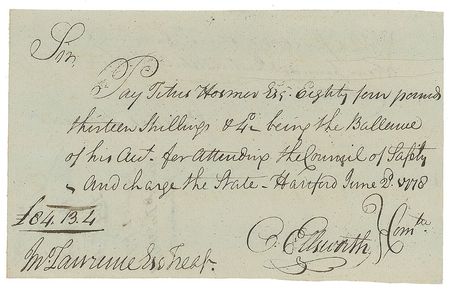 Sir,
Pay Titus Hosmer Esq. Eighty four pounds
thirteen Shillings & 4d. being the Ballence
of his Acct. for Attending the Council of Safety
and charge the State - Hartford June 2d. 1778
£84.13.4
O. Ellsworth } Comtee
Jno. Lawrence Esq Treasr.